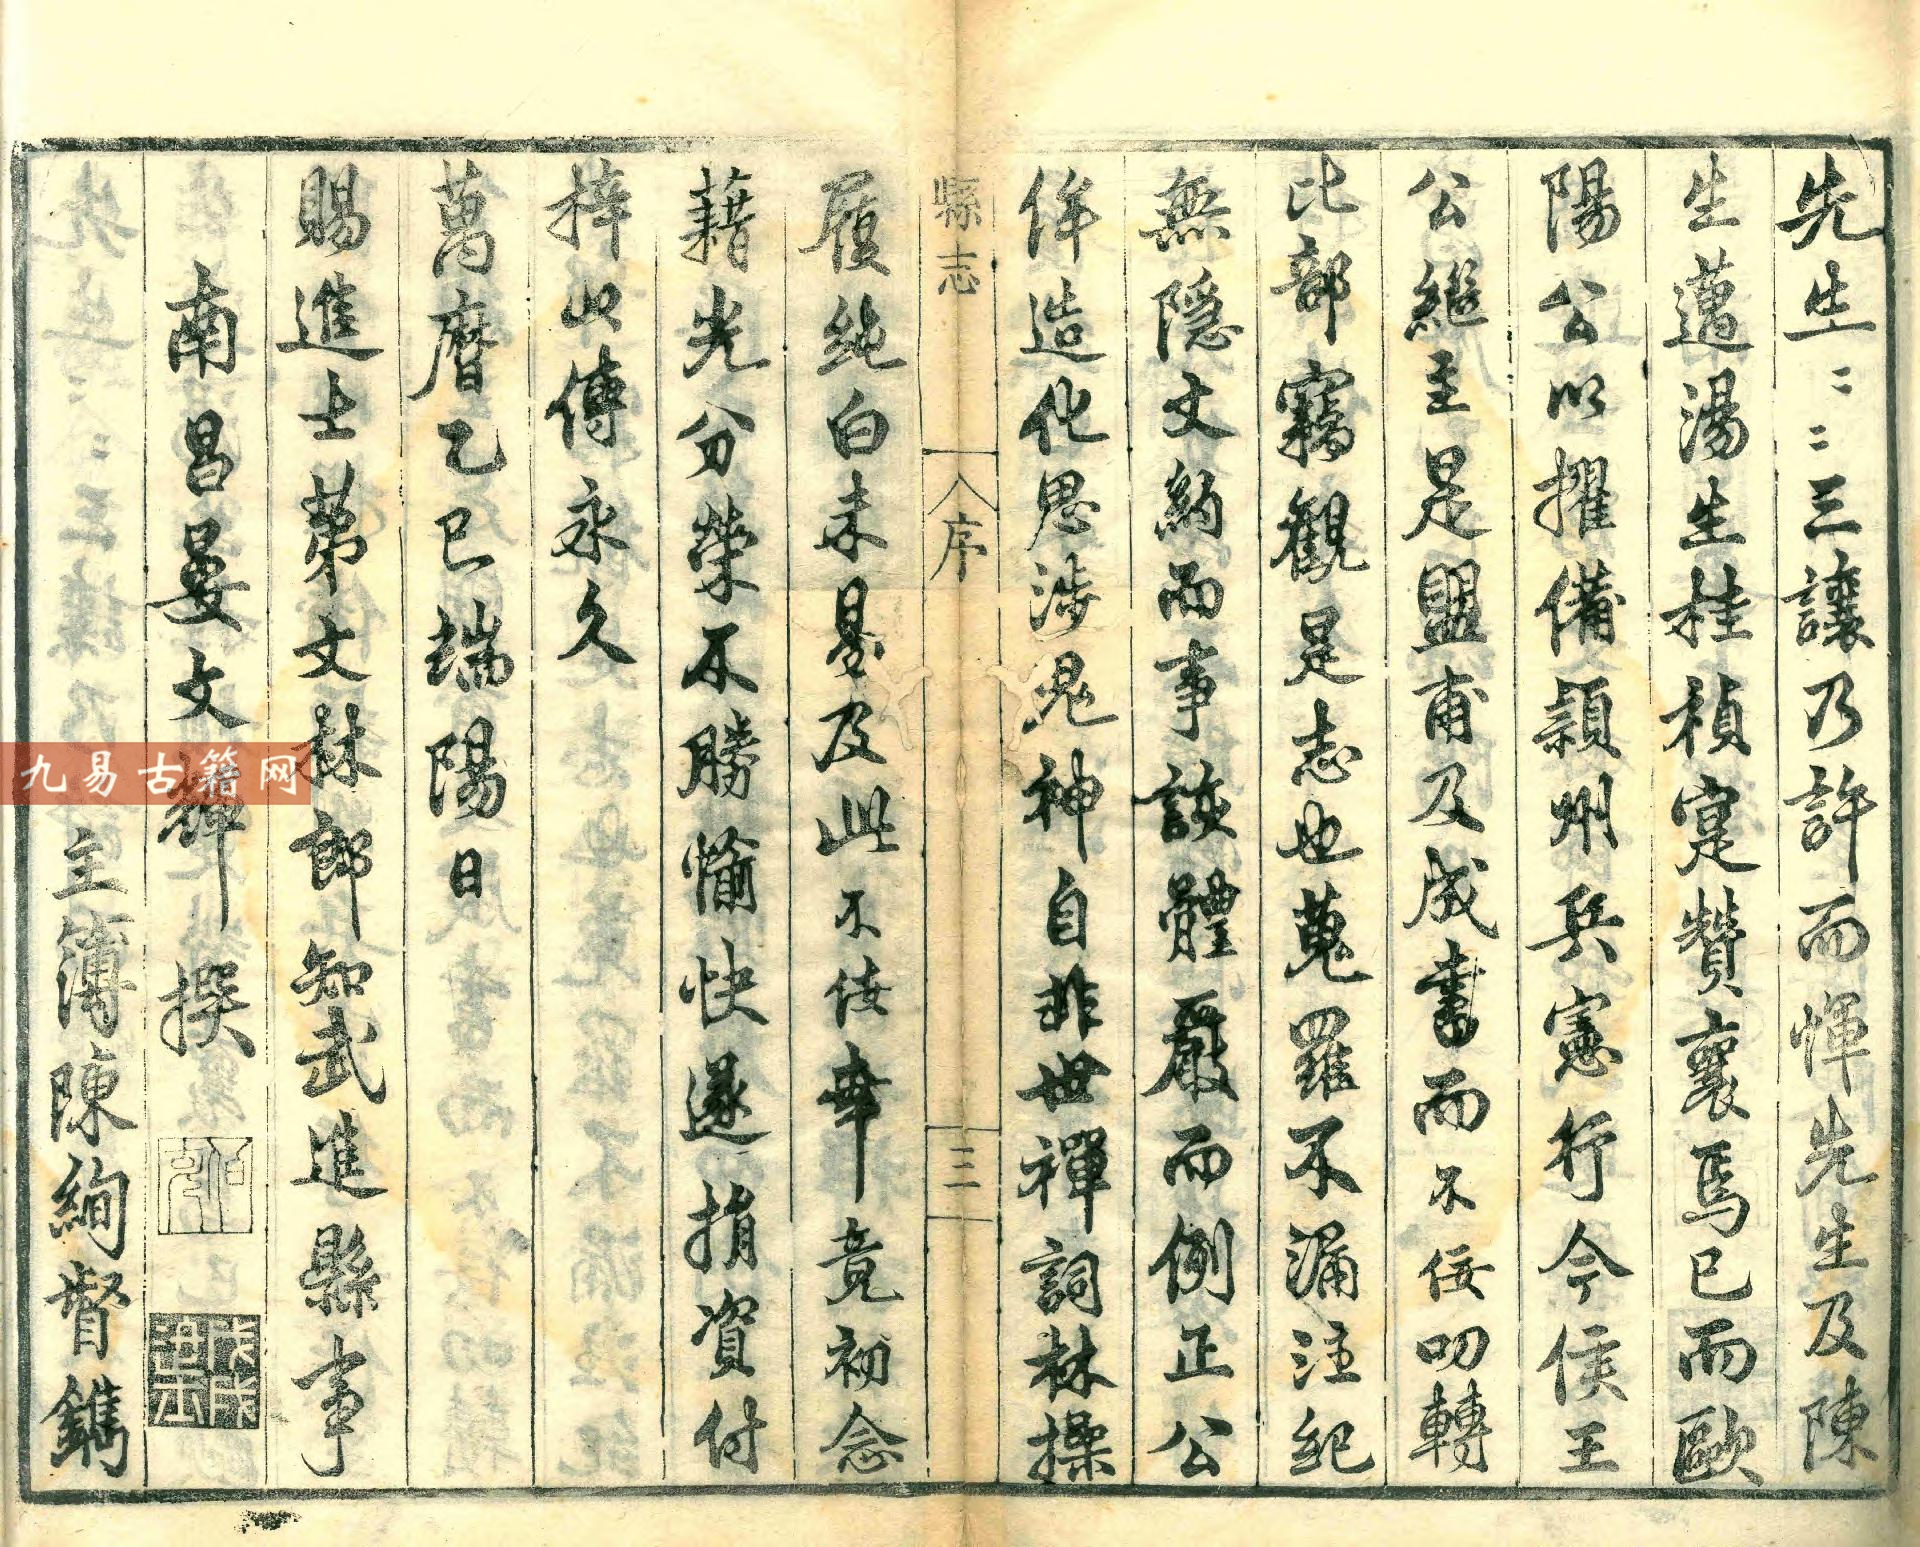 先生〻〻三讓乃許而惲先生及陳
生遵湯生桂楨寔贊襄焉已而歐
陽公以擢備潁州兵憲行今侯王
公繼主是盟甫及成書而不佞叨轉
比部竊觀是志也蒐羅不漏注紀
無隱文約而事該體嚴而例正公
侔造化思涉鬼神自非世禪詞林操
縣志 序 三
履純白未易及此不佞幸竟初念
藉光分榮不勝愉快遂捐資付
梓以傳永久
萬曆乙巳端陽日
賜進士第文林郎知武進縣事
南昌晏文輝撰
主簿陳絢督鐫
九易古籍网